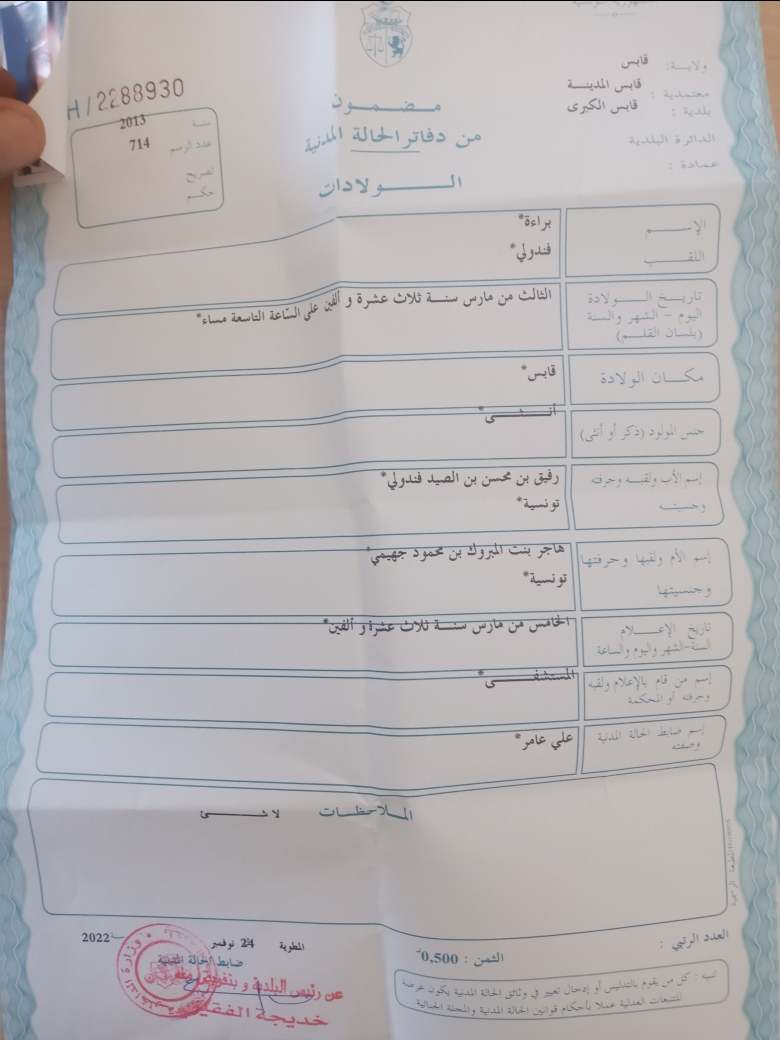 ولاية: قابس
معتمدية : قابس المدينـــة
بلدية : قابس الكبرى
الدائرة البلدية
عمادة :
H/2288930
سنة 2013
عدد الرسم 714
تصريح
حكـــم
مـضـمـــون
من دفاتر الحالة المدنية
الـــــولادات
الإســـــم براءة*
اللقــــب فندولي*
تاريـــخ الـــــولادة
اليوم - الشهر والسنة
(بلسان القلـــم)
الثالث من مارس سنـــة ثلاث عشرة و ألفين على السّاعة التاسعة مساء*
مكـــان الولادة قابس*
جنس المولود (ذكر أو أنثى) أنـــــثــــى*
إسم الأب ولقبـــه وحرفته رفيق بن محسن بن الصيد فندولي*
وجنسيتـــه تونسية*
إسم الأم ولقبها وحرفتها هاجر بنت المبروك بن محمود جهيمي*
وجنسيتها تونسية*
تاريخ الإعـــــلام الخامس من مارس سنـــة ثلاث عشرة و ألفين*
السنة-الشهر واليوم والساعة
إسم من قام بالإعلام ولقبه المستشفـــــى*
وحرفته أو المحكمة
إسم ضابط الحالة المدنية علي عامر*
وصفته
الملاحظـــات لا شـــــئ
العدد الرتبي :
الثمن : 0,500د
المطوية 24 نوفمبر سنة 2022
ضابط الحالة المدنية
عن رئيس البلدية و بتفويض منه
خديجة
تنبيه : كل من يقوم بالتدليس أو إدخال تغيير في وثائق الحالة المدنية يكون عرضة
للتتبعات العدلية عملا بأحكام قوانين الحالة المدنية والمجلة الجنائية.